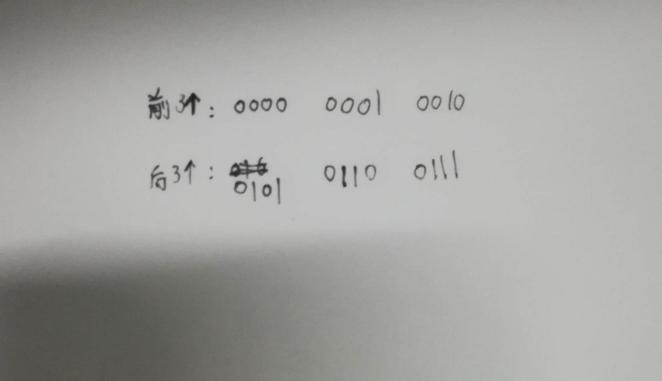 前3个: 0000 0001 0010
后3个: 0101 0110 0111